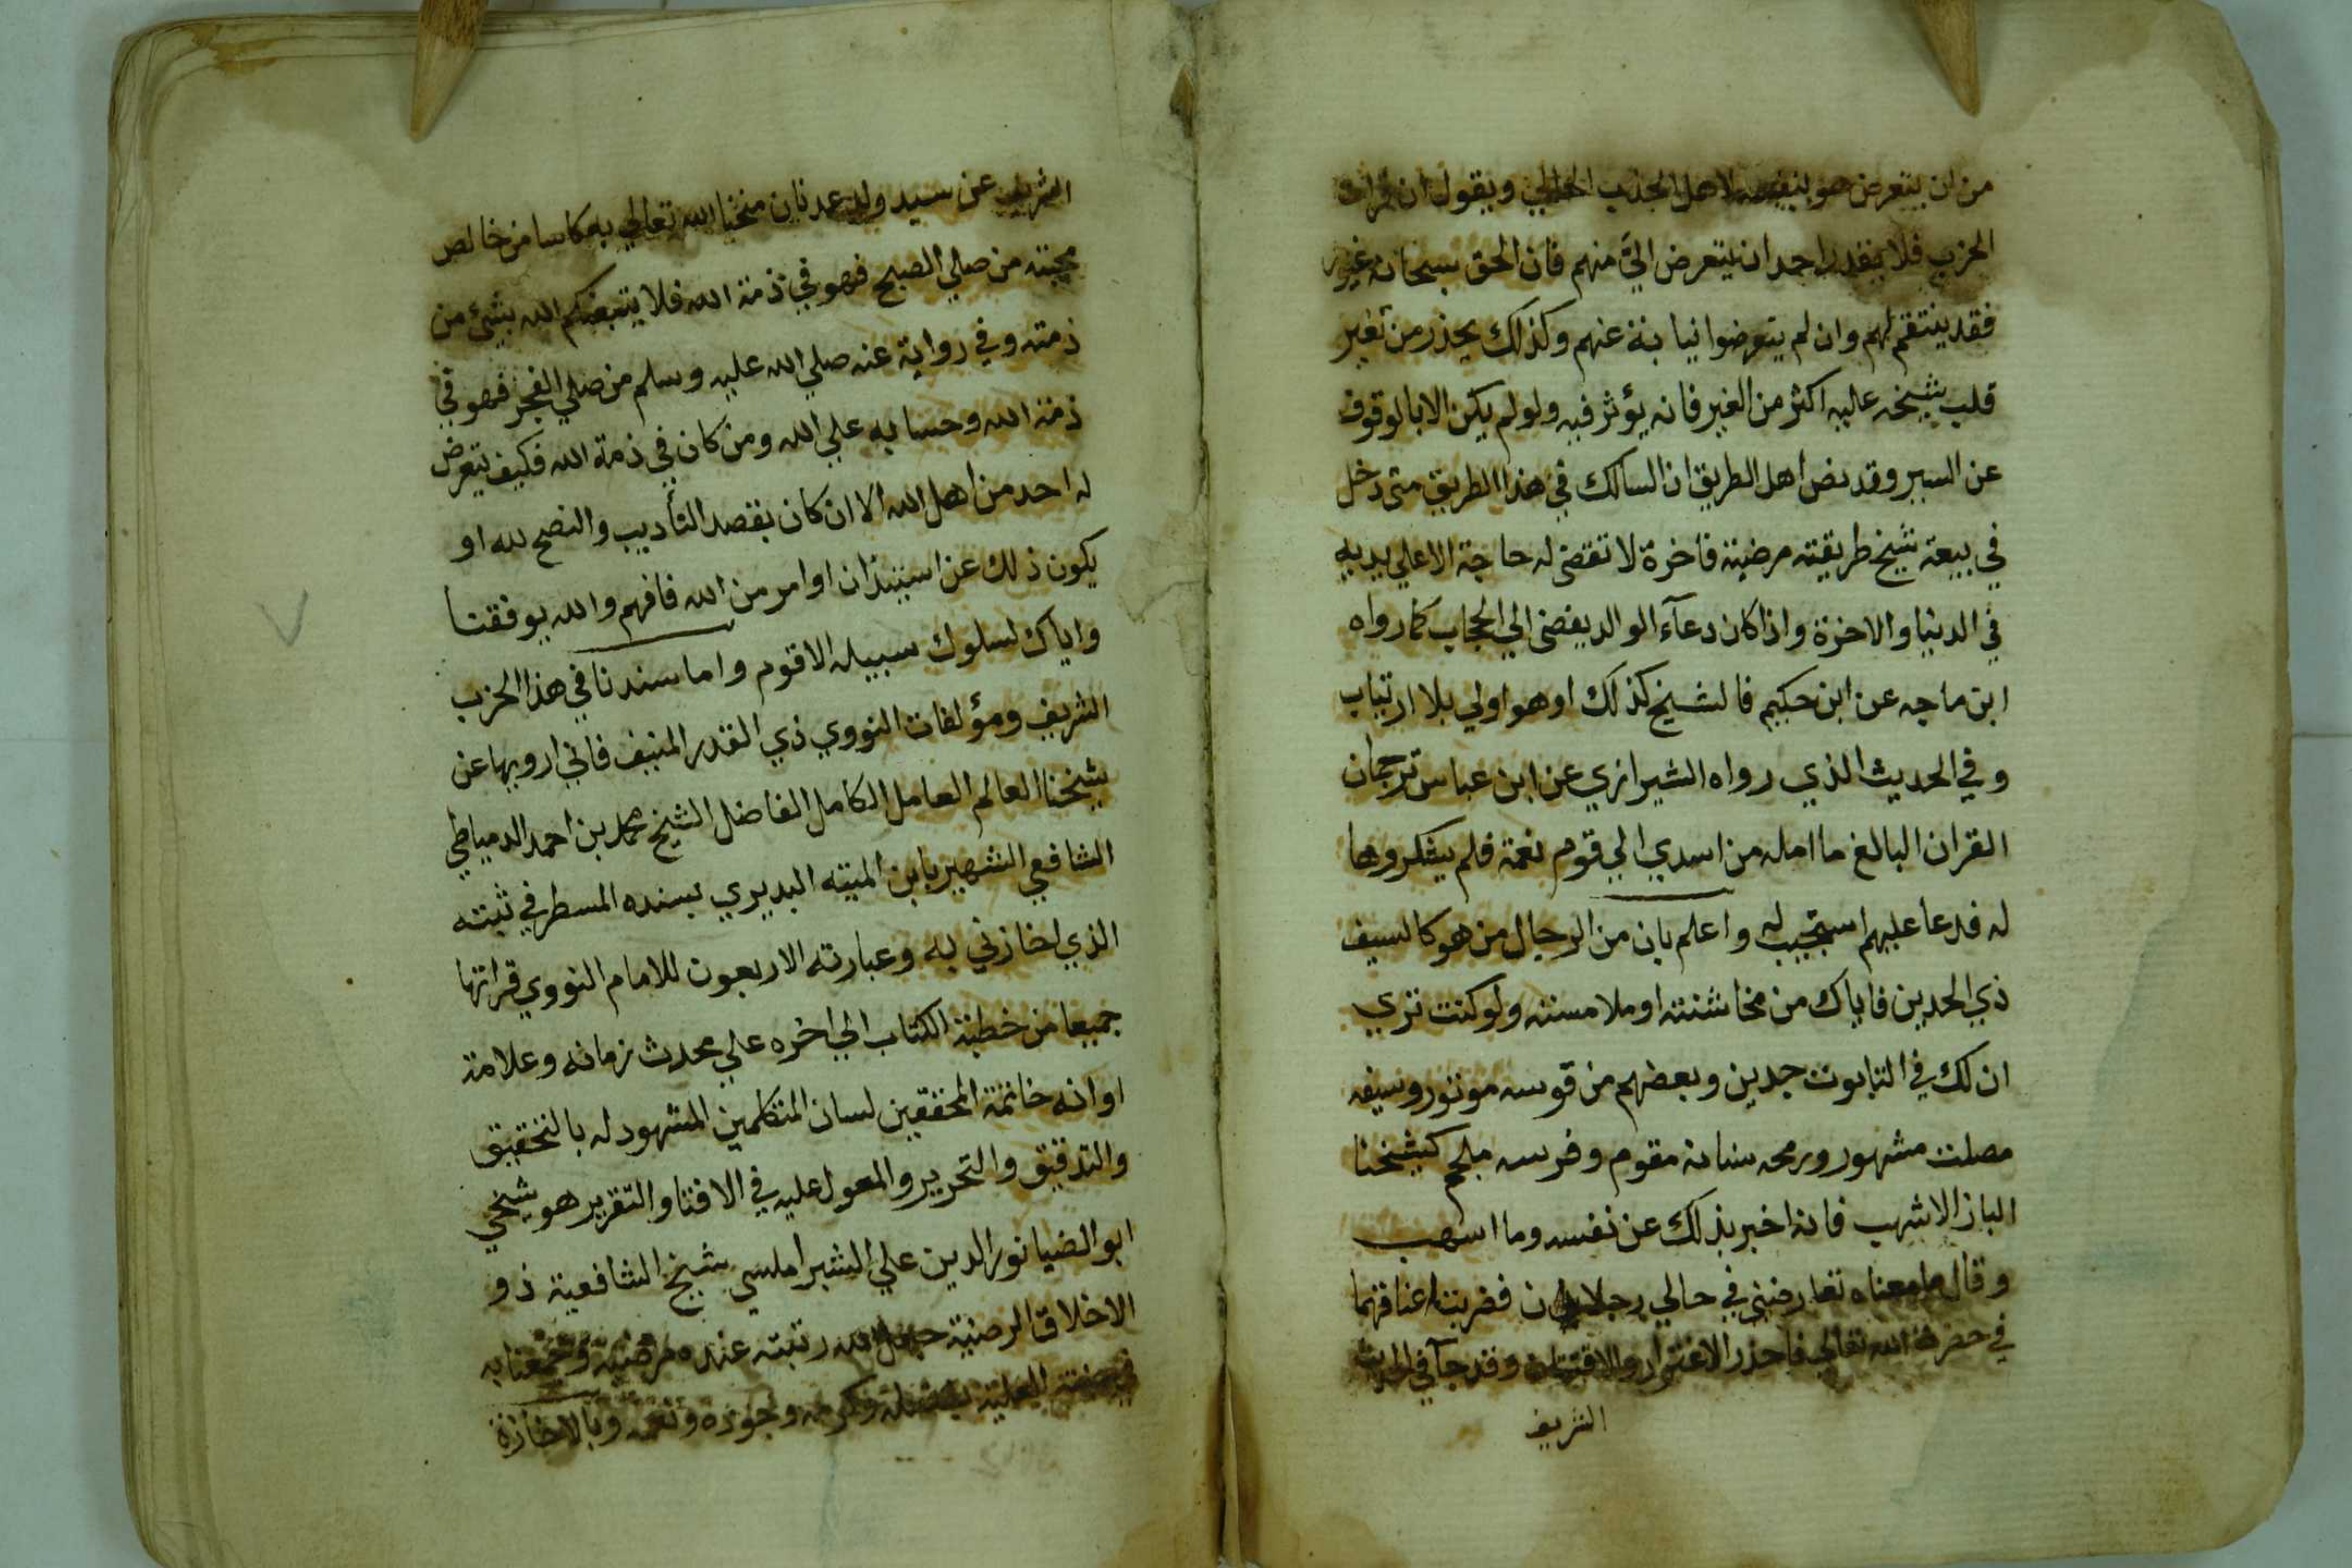 من ان يتعرض هو بنفسه لاهل الجذب الحالي ويقول ان قرات
الحزب فلا يقدر احد ان يتعرض اليّ منهم فان الحق سبحانه غيور
فقد ينتقم لهم وان لم يتعرضوا نيابة عنهم وكذلك يحذر من تغير
قلب شيخه عليه اكثر من الغير فانه يؤثر فيه ولو لم يكن الا بالوقوف
عن السير وقد نص اهل الطريق ان السالك في هذا الطريق متى دخل
في بيعة شيخ طريقته مرضية فاخرة لا تقضى له حاجة الا علي يديه
في الدنيا والاخرة واذا كان دعآء الوالد يفضى الي الحجاب كما رواه
ابن ماجه عن ابن حكيم فالشيخ كذلك او هو اولي بلا ارتياب
وفي الحديث الذي رواه الشيرازي عن ابن عباس ترجمان
القران البالغ ما امله من اسدي الي قوم نعمة فلم يشكروها
له فدعا عليهم استجيب له واعلم بان من الرجال من هو كالسيف
ذي الحدين فاياك من مخاشنته او ملامسته ولو كنت تري
ان لك في التابوت جدين وبعضهم من قوسه موتور وسيفه
مصلت مشهور ورمحه سنانه مقوم وفرسه ملجم كشيخنا
الباز الاشهب فانه اخبر بذلك عن نفسه وما اسهب
وقال ما معناه تعارضني في حالي رجلان فضربت اعناقهما
في حضرة الله تعالي فاحذر الاغترار والافتتان وقد جآ في الحديث
الشريف
الشريف عن سيد ولد عدنان منحنا الله تعالي به كاسا من خالص
محبته من صلي الصبح فهو في ذمة الله فلا يتبعنكم الله بشئ من
ذمته وفي رواية عنه صلي الله عليه وسلم من صلي الفجر فهو في
ذمة الله وحسابه علي الله ومن كان في ذمة الله فكيف يتعرض
له احد من اهل الله الا ان كان بقصد التأديب والنصح لله او
يكون ذلك عن استيذان او امر من الله فافهم والله يوفقنا
واياك لسلوك سبيله الاقوم واما سندنا في هذا الحزب
الشريف ومؤلفات النووي ذي القدر المنيف فاني ارويها عن
شيخنا العالم العامل الكامل الفاضل الشيخ محمد بن احمد الدمياطي
الشافعي الشهير بابن الميته البديري بسنده المسطر في ثبته
الذي اجازني به وعبارته الاربعون للامام النووي قراتها
جميعا من خطبة الكتاب الي اخره علي محدث زمانه وعلامة
اوانه خاتمة المحققين لسان المتكلمين المشهود له بالتحقيق
والتدقيق والتحرير والمعول عليه في الافتا والتقرير هو شيخي
ابو الضيا نور الدين علي الشبراملسي شيخ الشافعية ذو
الاخلاق الرضية جعل الله رتبته عنده مرضية وجمعنا به
العلية بفضله وكرمه وجوده ونعمه وبالاجازة